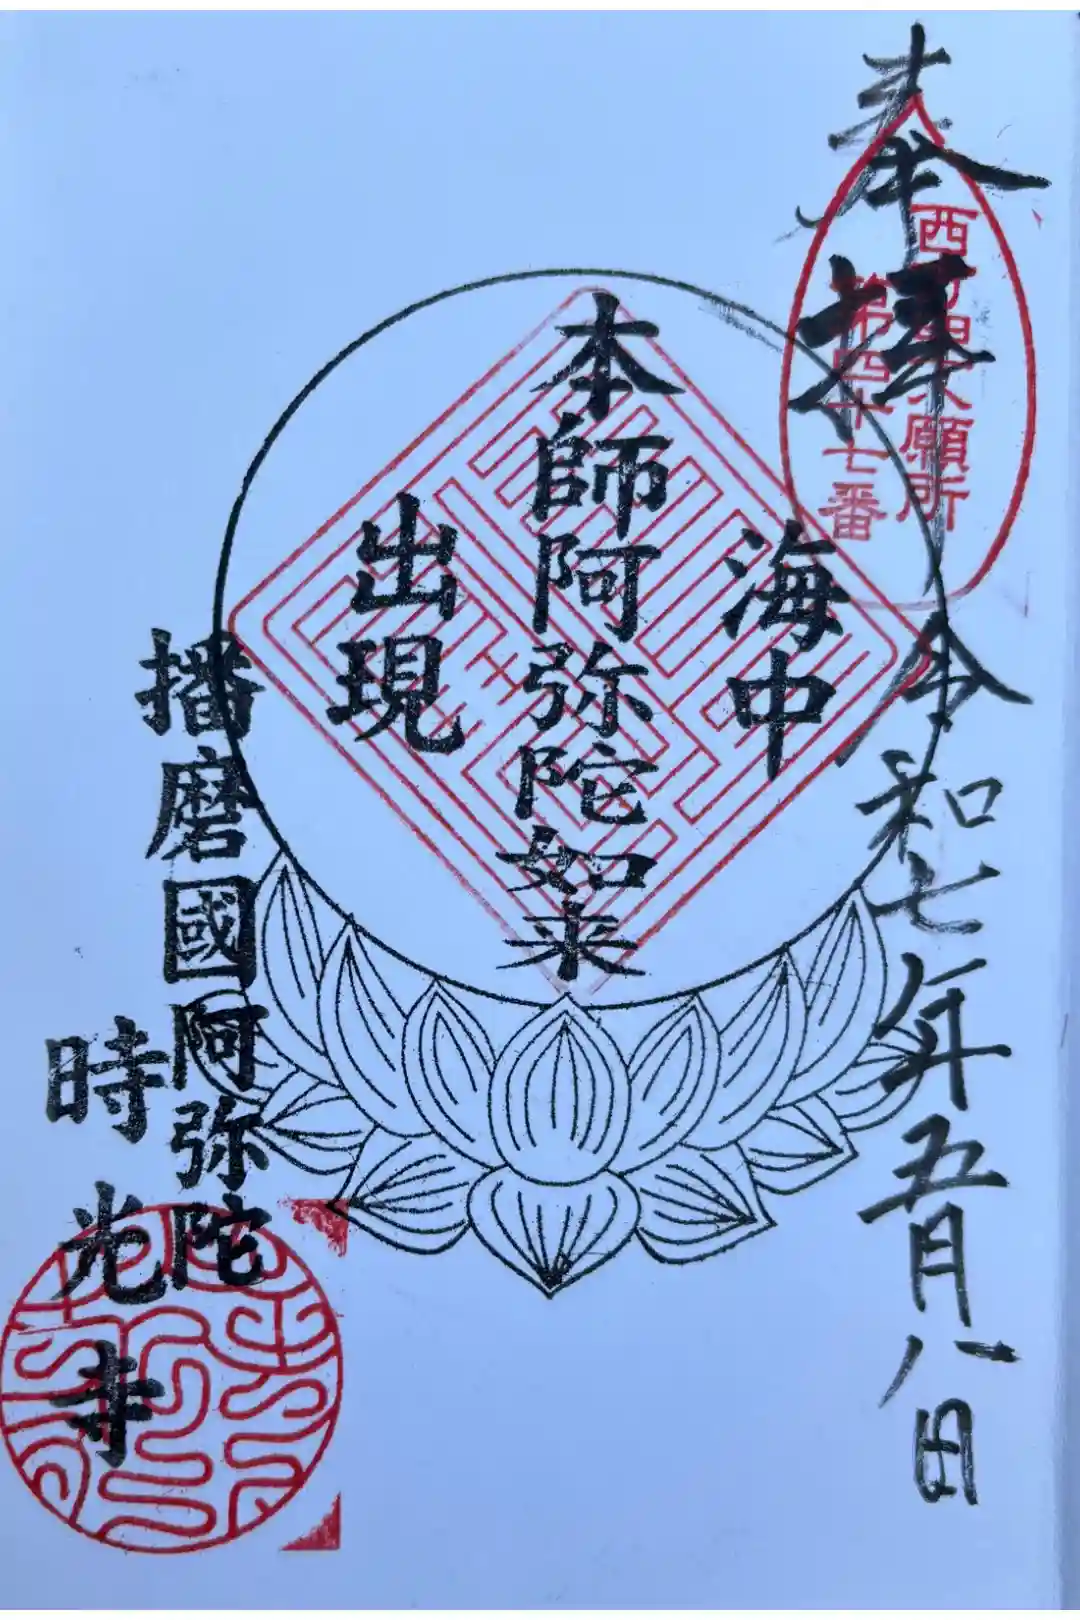 奉拝
西山四十八願所
第四十七番
令和七年五月八日
海中
本師阿弥陀如来
出現
播磨國阿弥陀
時光寺